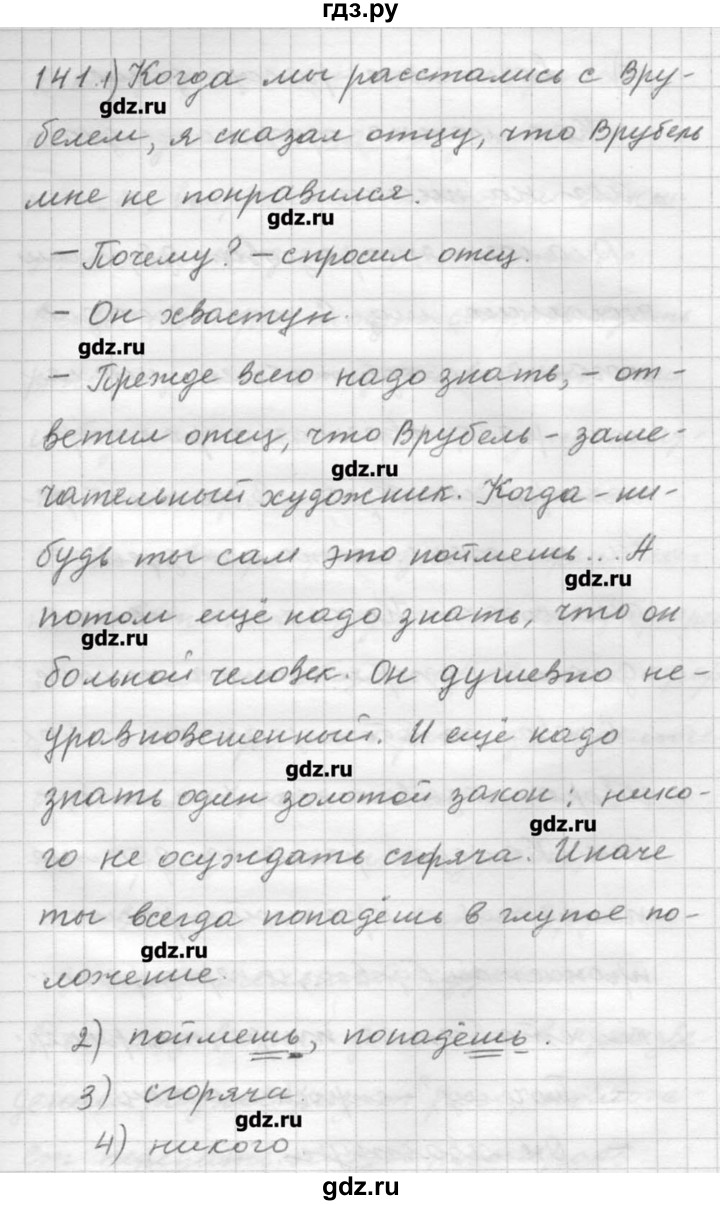 гдз.ру
141.1) Когда мы расстались с Вру-
gdz.ru
белем, я сказал отцу, что Врубель
мне не понравился.
gdz.ru
– Почему? – спросил отец.
– Он хвастун.
gdz.ru
– Прежде всего надо знать, – от-
ветил отец, что Врубель – заме-
gdz.ru
чательный художник. Когда-ни-
будь ты сам это поймешь... А
gdz.ru
потом ещё надо знать, что он
gdz.ru
больной человек. Он душевно не-
уравновешенный. И ещё надо
gdz.ru
знать один золотой закон: нико-
gdz.ru
го не осуждать сгоряча. Иначе
ты всегда попадёшь в глупое по-
gdz.ru
ложение.
2) поймешь, попадёшь.
3) сгоряча.
gdz.ru
4) никого
gdz.ru